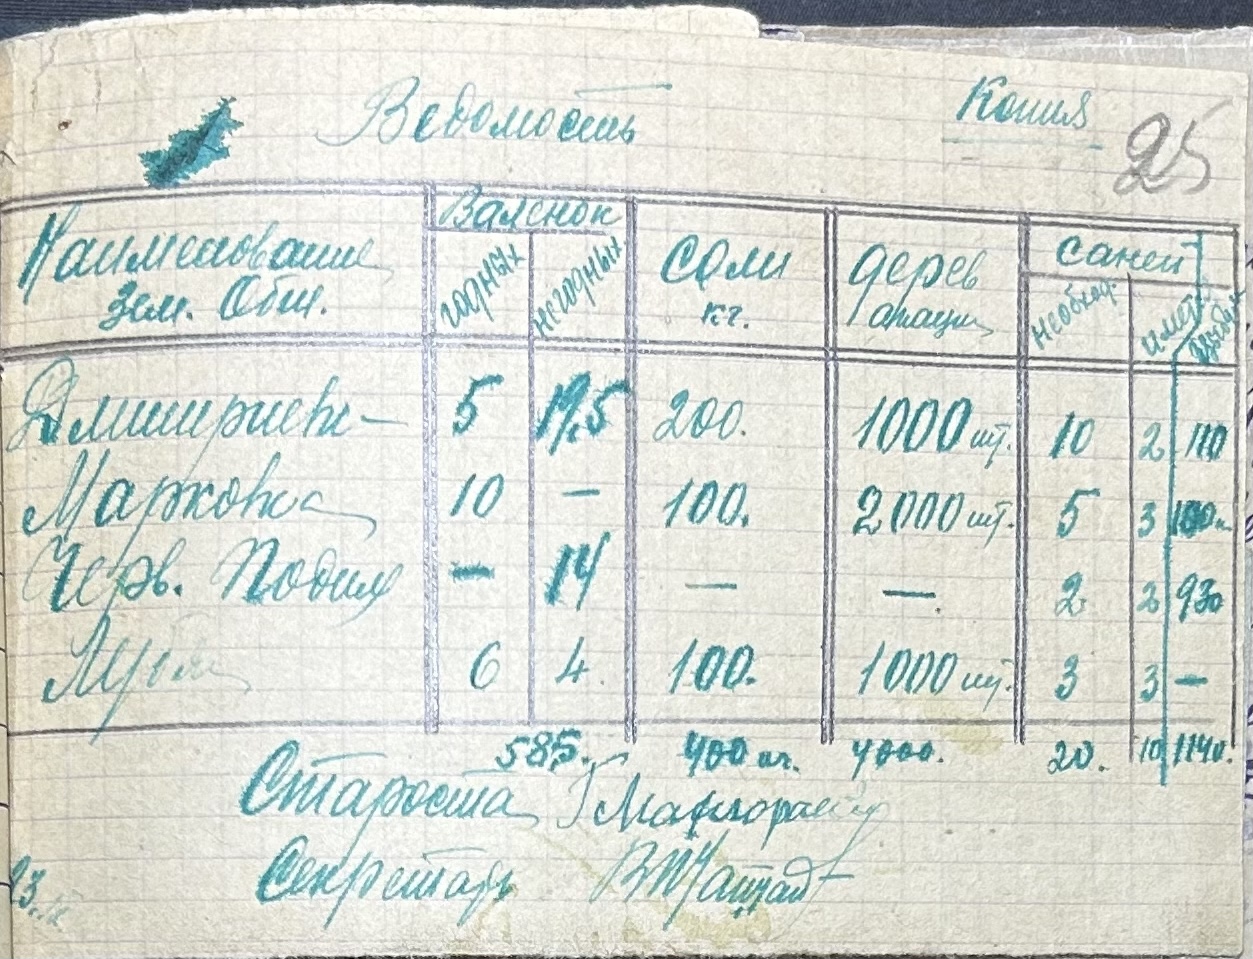 Ведомость
Копия
25
Наименование Зем. Общ.
Валенок
годных
негодных
соли кг.
дерев
саней
необход.
имеет
Дмитриевк- 5 19,5 200. 1000 шт. 10 2 110
Марковка 10 – 100. 2000 шт. 5 3 100
Черв. Подия – 14 – –. 2 2 930
6 4 100. 1000 шт. 3 3 –
58,5. 400 кг. 4000. 20. 10 1140.
Староста
Секретарь
23.